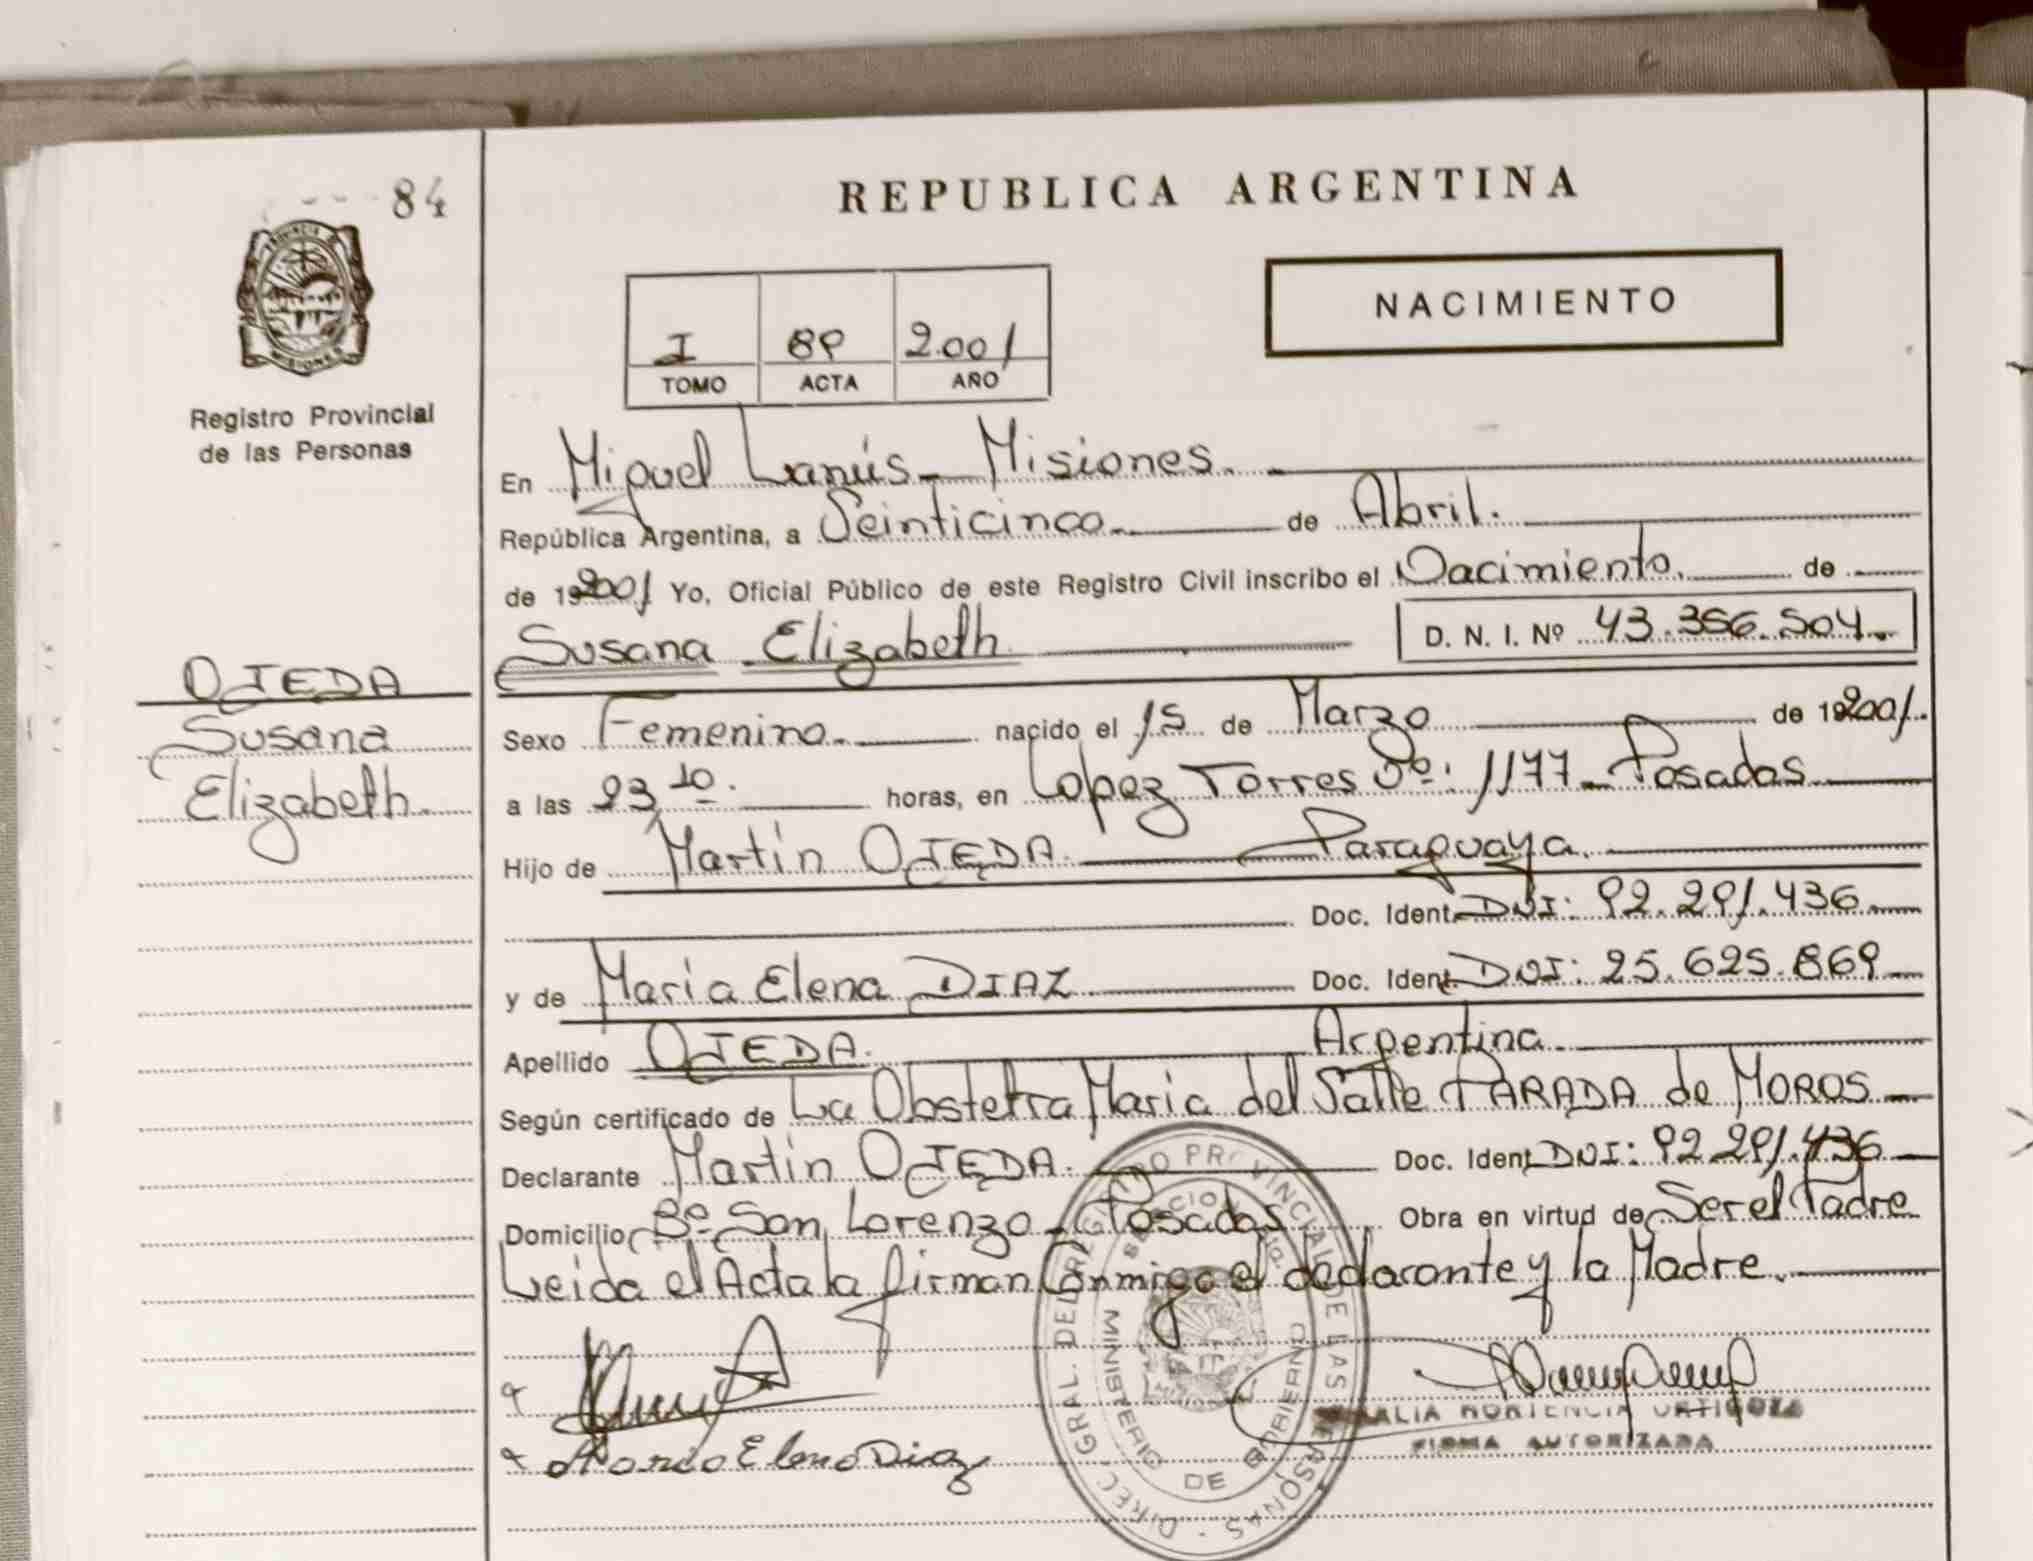 84
REPUBLICA ARGENTINA
PROVINCIA DE
MISIONES
Registro Provincial
de las Personas
I 89 2.001
TOMO ACTA AÑO
NACIMIENTO
En Miguel Lanús - Misiones.
República Argentina, a Veinticinco de Abril.
de 192001 Yo, Oficial Público de este Registro Civil inscribo el Nacimiento. de
Susana Elizabeth D. N. I. Nº 43.356.504.
OJEDA
Susana
Elizabeth.
Sexo Femenino. nacido el 15 de Marzo de 192001.
a las 23,10. horas, en Lopez Torres Nº: 1177 - Posadas
Hijo de Martín OJEDA. Paraguaya.
Doc. Ident. DNI: 92.291.436.
y de María Elena DIAZ Doc. Ident. DNI: 25.625.869
Apellido OJEDA. Argentina.
Según certificado de La Obstetra Maria del Valle PARADA de MOROS
Declarante Martín OJEDA. Doc. Ident DNI: 92.291.436
Domicilio Bº San Lorenzo - Posadas Obra en virtud de Ser el Padre
Leida el Acta la firman Conmigo el declarante y la Madre.
Maria Elena Diaz
HORTENCIA URTIGOZA
FIRMA AUTORIZADA
DIREC. GRAL. DEL REGISTRO PROVINCIAL DE LAS PERSONAS
MINISTERIO DE GOBIERNO